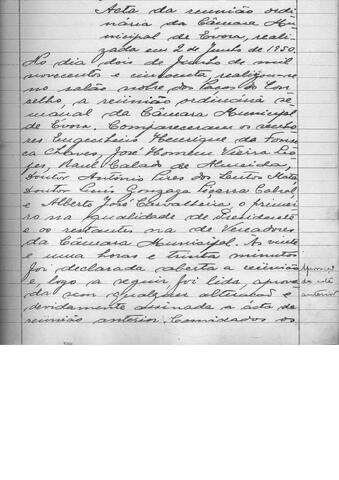 Acta da reunião ordi-
nária da Câmara Mu-
nicipal de Evora, reali-
zada em 2 de Junho de 1950.
No dia dois de Junho de mil
novecentos e cincoenta, realizou-se
no salão nobre dos Paços do Con-
selho, a reùnião ordinária se-
manal da Câmara Municipal
de Evora. Compareceram os senho-
res Engenheiro Henrique da Fonse-
ca Chaves, José Homem Vieira
Raul Calado de Almeida,
Doutor António Pires dos Santos
Doutor Luis Gonzaga Cabral
e Alberto José Carvalheira, o primei-
ro na qualidade de Presidente
e os restantes na de Vereadores
da Câmara Municipal. Ás vinte
e uma horas e trinta minutos
foi declarada aberta a reùnião
e, logo a seguir foi lida, aprova-
da sem qualquer alteração e
devidamente assinada a acta da
reùnião anterior. Convidados os
anterior